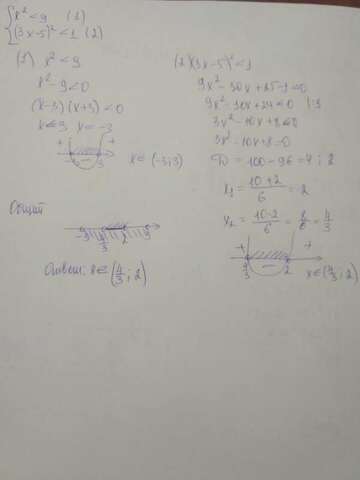 {x² < 9 (1)
(3x-5)² < 1 (2)
(1) x² < 9
x² - 9 < 0
(x-3)(x+3) < 0
x = 3 x = -3
+ - +
-3 3
x ∈ (-3; 3)
(2) (3x-5)² < 1
9x² - 30x + 25 - 1 < 0
9x² - 30x + 24 < 0 | :3
3x² - 10x + 8 < 0
3x² - 10x + 8 = 0
D = 100 - 96 = 4; 2
x₁ = 10+2/6 = 2
x₂ = 10-2/6 = 8/6 = 4/3
+ - +
4/3 2
x ∈ (4/3; 2)
Общий
-3 4/3 2 3
Ответ: x ∈ (4/3; 2)